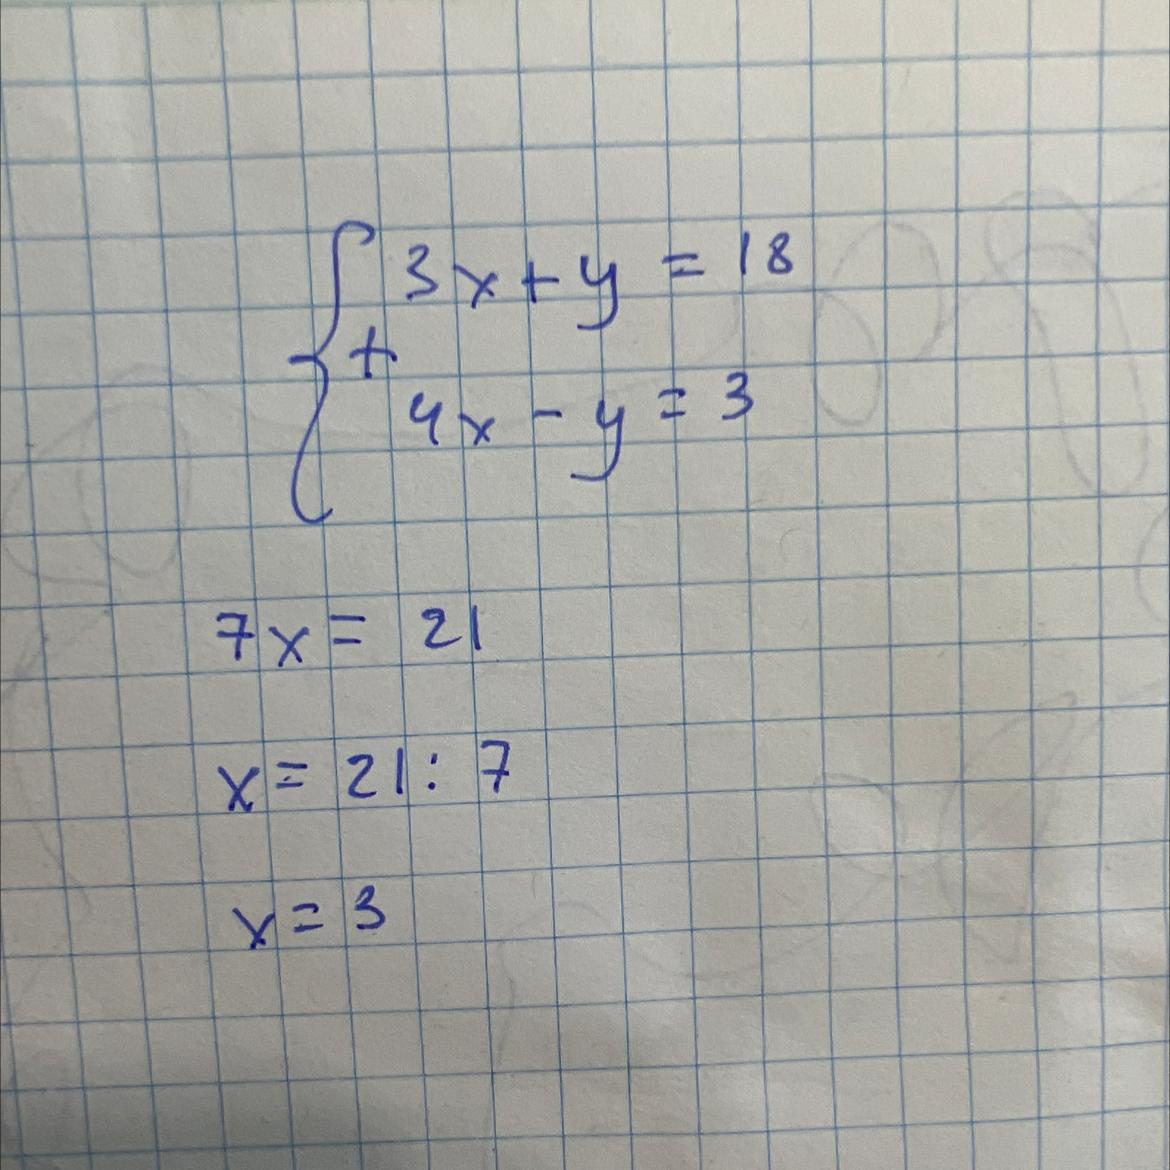 3x + y = 18
+
4x - y = 3
7x = 21
x = 21 : 7
x = 3